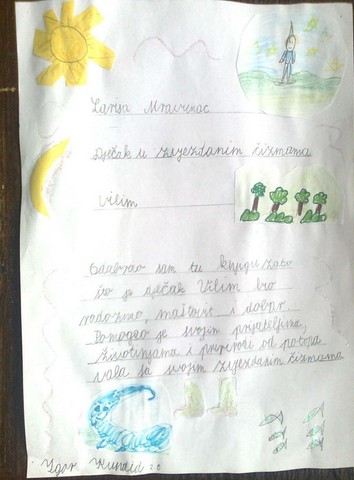 Larisa Mravunac
Dječak u zvjezdanim čizmama
Vilim
Odabrao sam tu knjigu zato
što je dječak Vilim bio
radoznao, maštovit i dobar.
Pomogao je svojim prijateljima,
životinjama i prirodi od potopa
vala sa svojim zvjezdanim čizmama
Igor 2.c